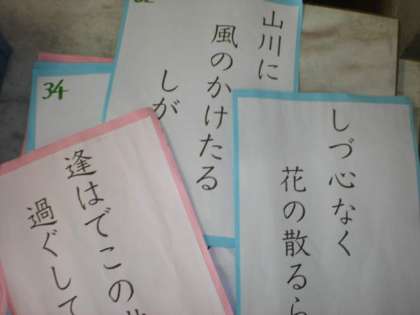 山川に
風のかけたる
しが
しづ心なく
花の散るら
34
逢はでこの
過ぐして